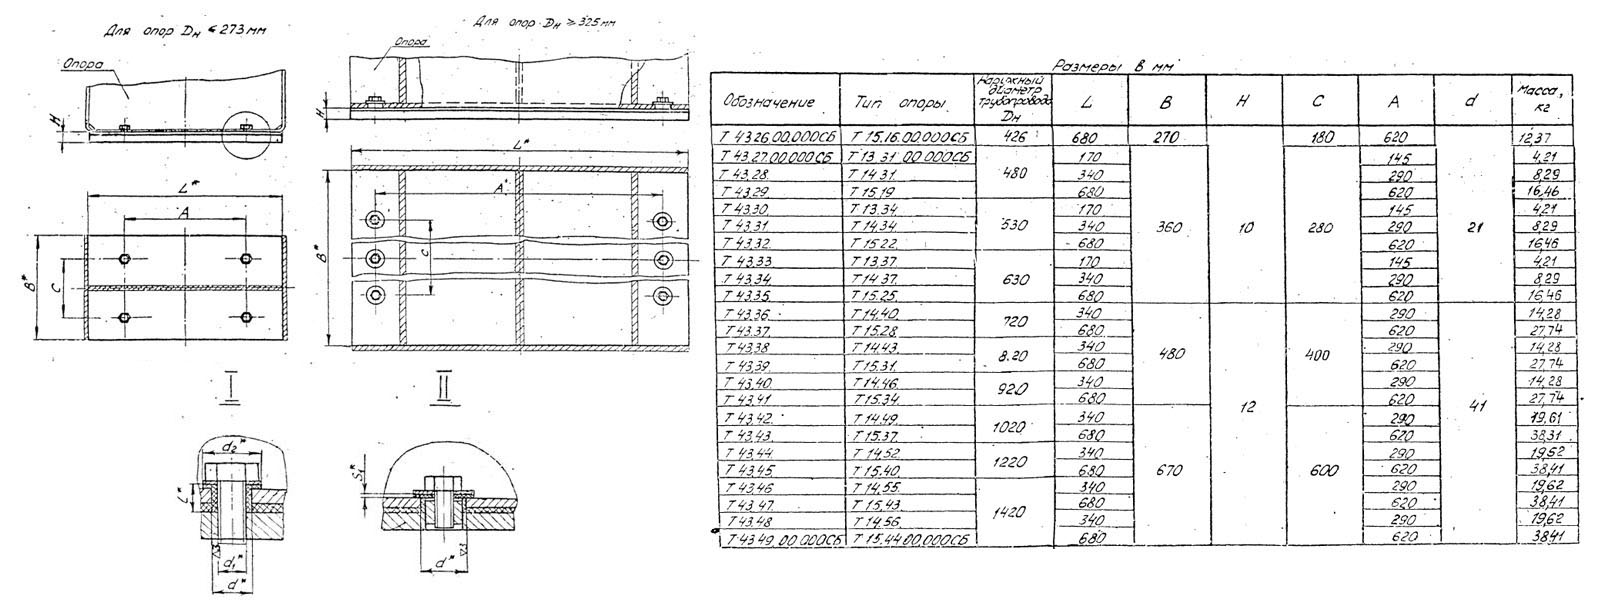 Для опор Dн ≤ 273 мм
Опора
H
L*
A
B*
C
Для опор Dн ≥ 325 мм
Опора
H
L*
A*
B*
C
I
d₂*
L*
d₁*
d*
II
S₁*
d*
Размеры в мм
Обозначение Тип опоры Наружный диаметр трубопровода Dн L B H C A d Масса, кг
Т 43.26.00.000СБ Т 15.16.00.000СБ 426 680 270 10 180 620 21 12,37
Т 43.27.00.000СБ Т 13.31.00.000СБ 480 170 360 280 145 4,21
Т 43.28 Т 14.31 340 290 8,29
Т 43.29 Т 15.19 680 620 16,46
Т 43.30 Т 13.34 530 170 145 4,21
Т 43.31 Т 14.34 340 290 8,29
Т 43.32 Т 15.22 680 620 16,46
Т 43.33 Т 13.37 630 170 145 4,21
Т 43.34 Т 14.37 340 290 8,29
Т 43.35 Т 15.25 680 620 16,46
Т 43.36 Т 14.40 720 340 480 12 400 290 41 14,28
Т 43.37 Т 15.28 680 620 27,74
Т 43.38 Т 14.43 8.20 340 290 14,28
Т 43.39 Т 15.31 680 620 27,74
Т 43.40 Т 14.46 920 340 290 14,28
Т 43.41 Т 15.34 680 620 27,74
Т 43.42 Т 14.49 1020 340 670 600 290 19,61
Т 43.43 Т 15.37 680 620 38,31
Т 43.44 Т 14.52 1220 340 290 19,62
Т 43.45 Т 15.40 680 620 38,41
Т 43.46 Т 14.55 1420 340 290 19,62
Т 43.47 Т 15.43 680 620 38,41
Т 43.48 Т 14.56 340 290 19,62
Т 43.49.00.000СБ Т 15.44.00.000СБ 680 620 38,41